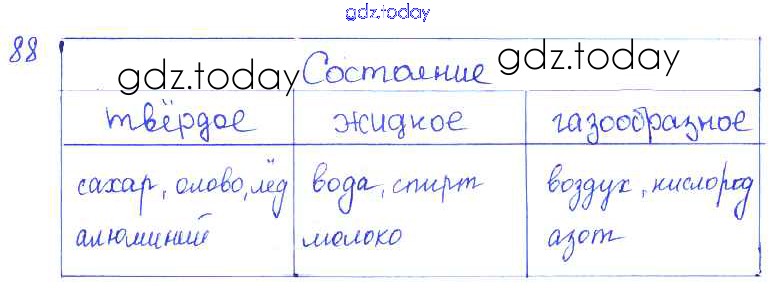 gdz.today
88
gdz.today Состояние gdz.today
твёрдое жидкое газообразное
сахар, олово, лёд вода, спирт воздух, кислород
алюминий молоко азот